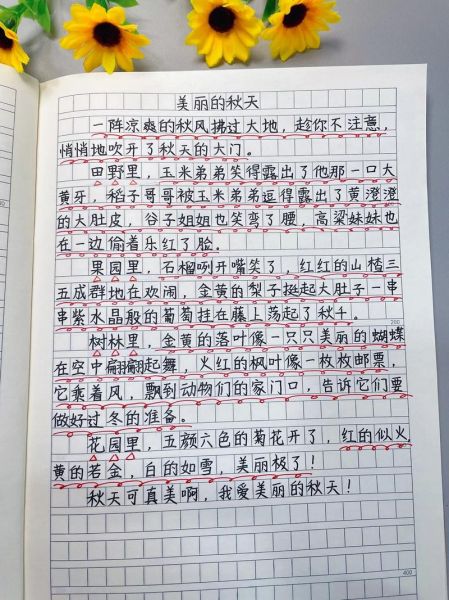 美丽的秋天
一阵凉爽的秋风拂过大地，趁你不注意，
悄悄地吹开了秋天的大门。
田野里，玉米弟弟笑得露出了他那一口大
黄牙，稻子哥哥被玉米弟弟逗得露出了黄澄澄
的大肚皮，谷子姐姐也笑弯了腰，高粱妹妹也
在一边偷着乐红了脸。
果园里，石榴咧开嘴笑了，红红的山楂三
五成群地在欢闹，金黄的梨子挺起大肚子一串
串紫水晶般的葡萄挂在藤上荡起了秋千。
200
树林里，金黄的落叶像一只只美丽的蝴蝶
在空中翩翩起舞，火红的枫叶像一枚枚邮票，
它乘着风，飘到动物们的家门口，告诉它们要
做好过冬的准备。
花园里，五颜六色的菊花开了，红的似火，
黄的若金，白的如雪，美丽极了！
秋天可真美啊，我爱美丽的秋天！
400